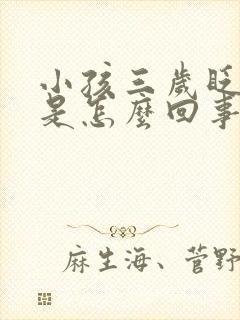 小孩三歲眨
是怎麼回事
麻生海、菅野